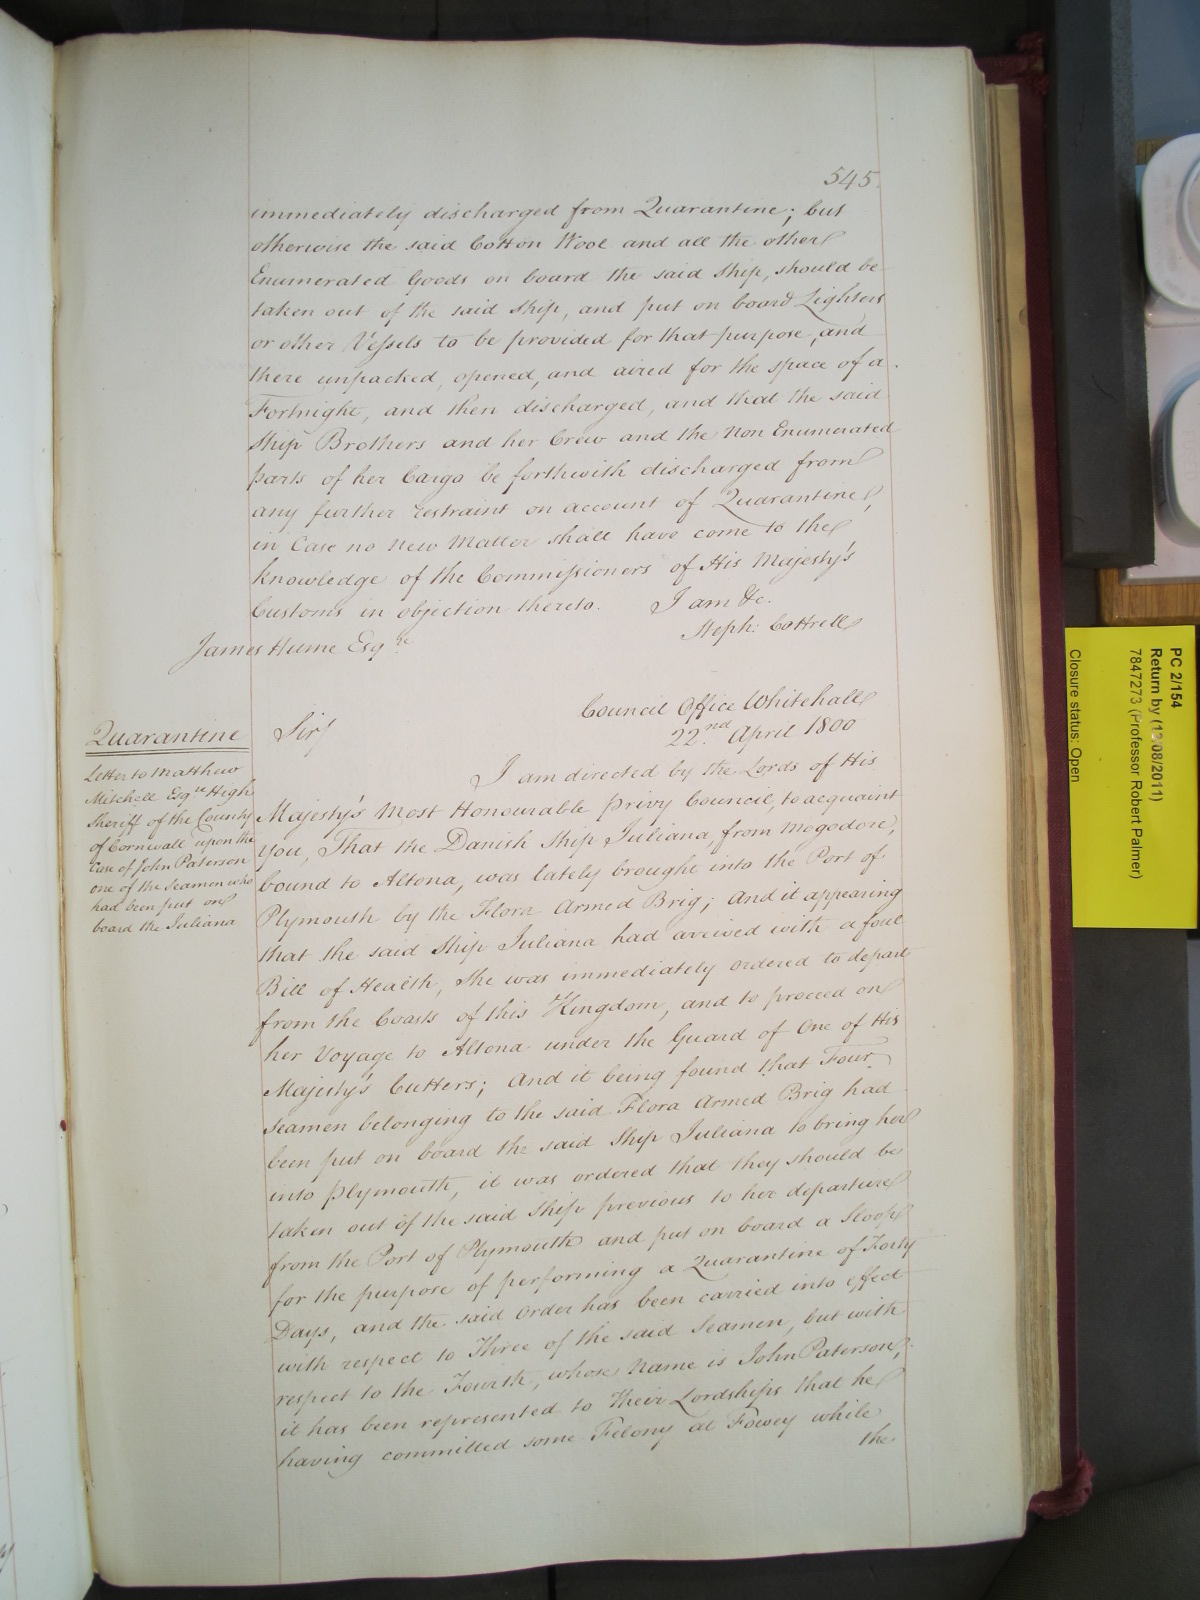 545.
immediately discharged from Quarantine; but
otherwise the said Cotton Wool and all the other
Enumerated Goods on board the said Ship, should be
taken out of the said Ship, and put on board Lighters
or other Vessels to be provided for that purpose, and
there unpacked, opened, and aired for the space of a
Fortnight, and then discharged, and that the said
Ship Brothers and her Crew and the Non Enumerated
parts of her Cargo be forthwith discharged from
any further restraint on account of Quarantine,
in Case no New Matter shall have come to the
knowledge of the Commissioners of His Majesty's
Customs in objection thereto. I am &c.
Steph: Cottrell
James Hume Esqre
Council Office Whitehall
22nd April 1800
Quarantine
Letter to Matthew
Mitchell Esqre High
Sheriff of the County
of Cornwall upon the
Case of John Paterson
one of the Seamen who
had been put on
board the Juliana
Sir
I am directed by the Lords of His
Majesty's Most Honourable Privy Council, to acquaint
you, That the Danish Ship Juliana, from Mogodore,
bound to Altona, was lately brought into the Port of
Plymouth by the Flora Armed Brig; And it appearing
that the said Ship Juliana had arrived with a foul
Bill of Health, She was immediately ordered to depart
from the Coasts of this Kingdom, and to proceed on
her Voyage to Altona under the Guard of One of His
Majesty's Cutters; And it being found that Four
Seamen belonging to the said Flora Armed Brig had
been put on board the said Ship Juliana to bring her
into Plymouth, it was ordered that they should be
taken out of the said Ship previous to her departure
from the Port of Plymouth and put on board a Sloop
for the purpose of performing a Quarantine of Forty
Days, and the said Order has been carried into effect
with respect to Three of the said Seamen, but with
respect to the Fourth, whose Name is John Paterson,
it has been represented to Their Lordships that he
having committed some Felony at Fowey while
the
PC 2/154
Return by (12/08/2011)
7847273 (Professor Robert Palmer)
Closure status: Open